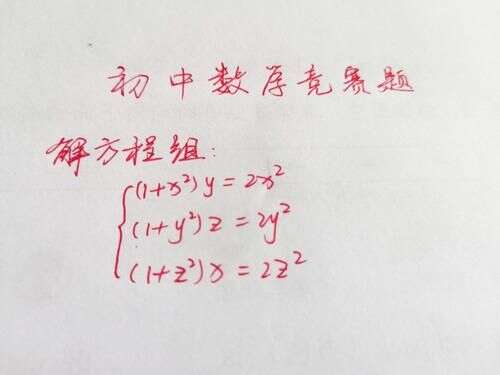 初中数学竞赛题
解方程组:
(1+x²)y=2x²
(1+y²)z=2y²
(1+z²)x=2z²